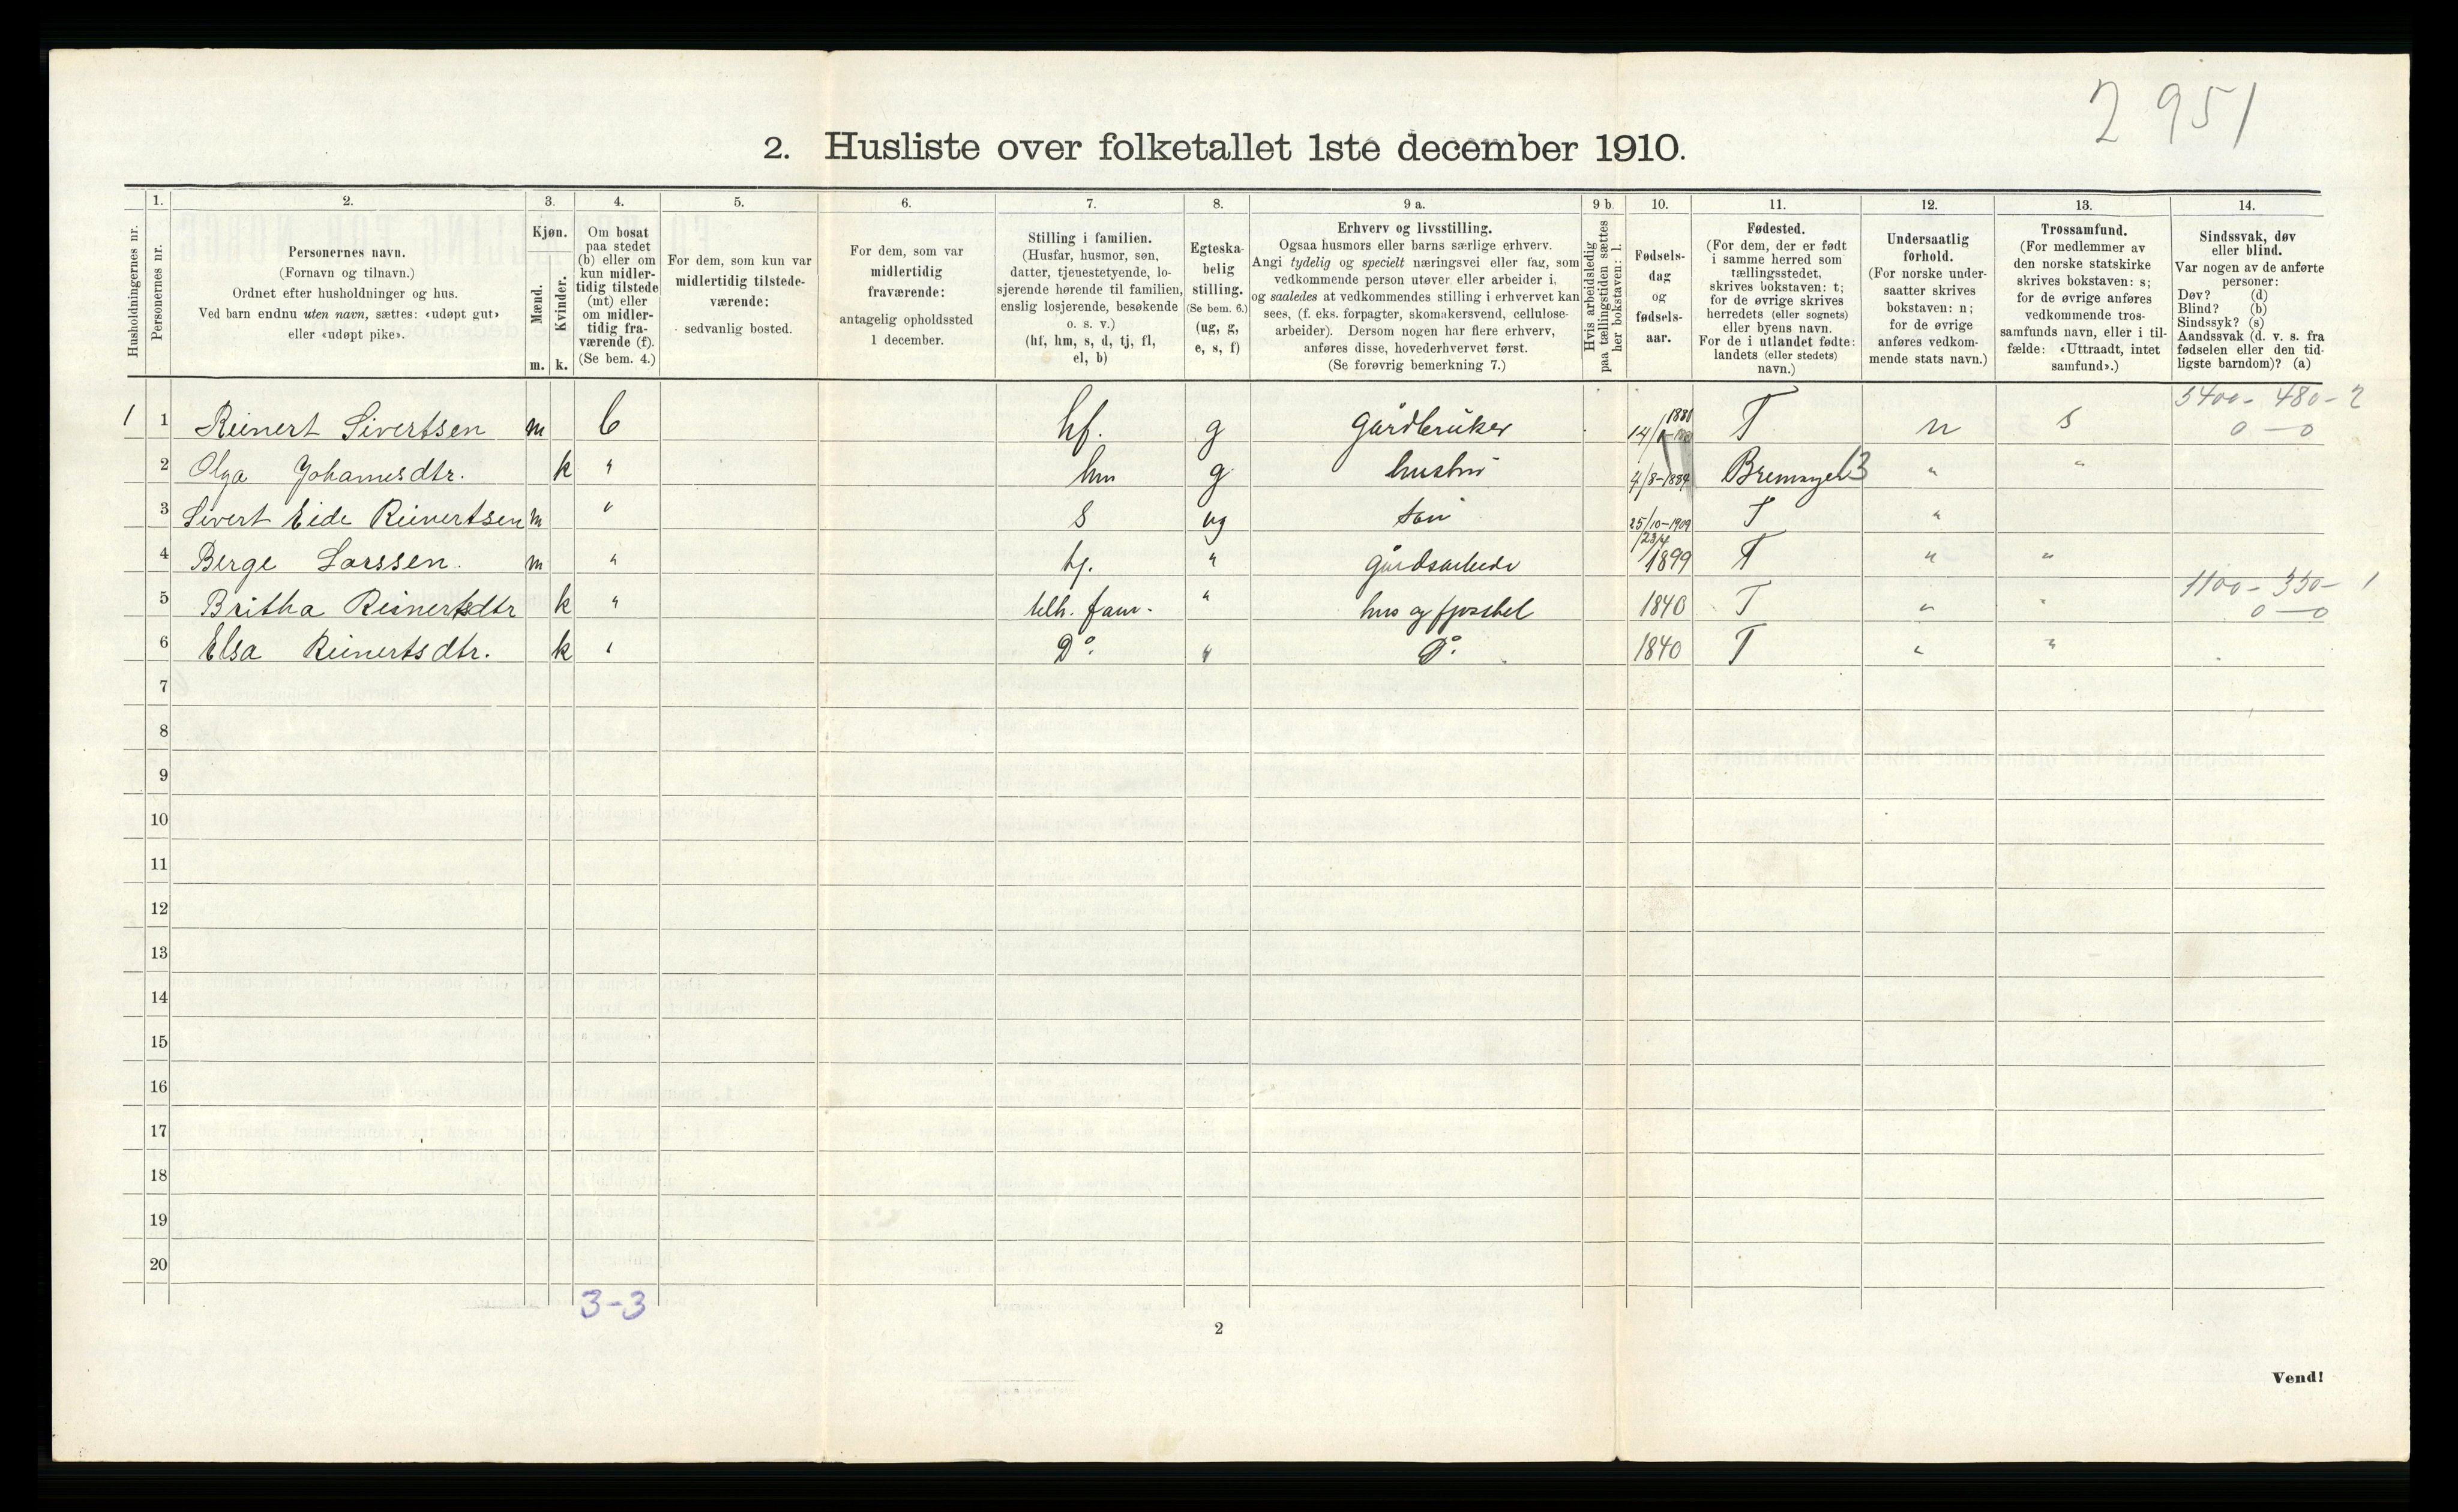 2 951
2. Husliste over folketallet 1ste december 1910.
Husholdningernes nr.
1.
Personernes nr.
2.
Personernes navn.
(Fornavn og tilnavn.)
Ordnet efter husholdninger og hus.
Ved barn endnu uten navn, sættes: «udøpt gut»
eller «udøpt pike».
3.
Kjøn.
Mænd.
Kvinder.
m. k.
4.
Om bosat
paa stedet
(b) eller om
kun midler-
tidig tilstede
(mt) eller
om midler-
tidig fra-
værende (f).
(Se bem. 4.)
5.
For dem, som kun var
midlertidig tilstede-
værende:
sedvanlig bosted.
6.
For dem, som var
midlertidig
fraværende:
antagelig opholdssted
1 december.
7.
Stilling i familien.
(Husfar, husmor, søn,
datter, tjenestetyende, lo-
sjerende hørende til familien,
enslig losjerende, besøkende
o. s. v.)
(hf, hm, s, d, tj, fl,
el, b)
8.
Egteska-
belig
stilling.
(Se bem. 6.)
(ug, g,
e, s, f)
9 a.
Erhverv og livsstilling.
Ogsaa husmors eller barns særlige erhverv.
Angi tydelig og specielt næringsvei eller fag, som
vedkommende person utøver eller arbeider i,
og saaledes at vedkommendes stilling i erhvervet kan
sees, (f. eks. forpagter, skomakersvend, cellulose-
arbeider). Dersom nogen har flere erhverv,
anføres disse, hovederhvervet først.
(Se forøvrig bemerkning 7.)
9 b.
Hvis arbeidsledig
paa tællingstiden sættes
her bokstaven: l.
10.
Fødsels-
dag
og
fødsels-
aar.
11.
Fødested.
(For dem, der er født
i samme herred som
tællingsstedet,
skrives bokstaven: t;
for de øvrige skrives
herredets (eller sognets)
eller byens navn.
For de i utlandet fødte:
landets (eller stedets)
navn.)
12.
Undersaatlig
forhold.
(For norske under-
saatter skrives
bokstaven: n;
for de øvrige
anføres vedkom-
mende stats navn.)
13.
Trossamfund.
(For medlemmer av
den norske statskirke
skrives bokstaven: s;
for de øvrige anføres
vedkommende tros-
samfunds navn, eller i til-
fælde: «Uttraadt, intet
samfund».)
14.
Sindssvak, døv
eller blind.
Var nogen av de anførte
personer:
Døv? (d)
Blind? (b)
Sindssyk? (s)
Aandssvak (d. v. s. fra
fødselen eller den tid-
ligste barndom)? (a)
1 1 Reinert Sivertsen m b hf. g gårdbruker 1880 T n s 5400 - 480 - 2
0 - 0
2 Olga Johannesdtr. k " hm g hustru 4/8-1884 13 " "
3 Sivert Eide Reinertsen m " s ug søn 25/10-1909 T "
4 Berge Larssen. m " tj. " 23/4 1899 T " "
5 Britha Reinertsdtr k " tilh. fam. " hus og fjosstel 1840 T " " 1100 - 350 - 1
0 - 0
6 Elsa Reinertsdtr. k " Do. " Do. 1840 T " "
7
8
9
10
11
12
13
14
15
16
17
18
19
20
3-3
2
Vend!